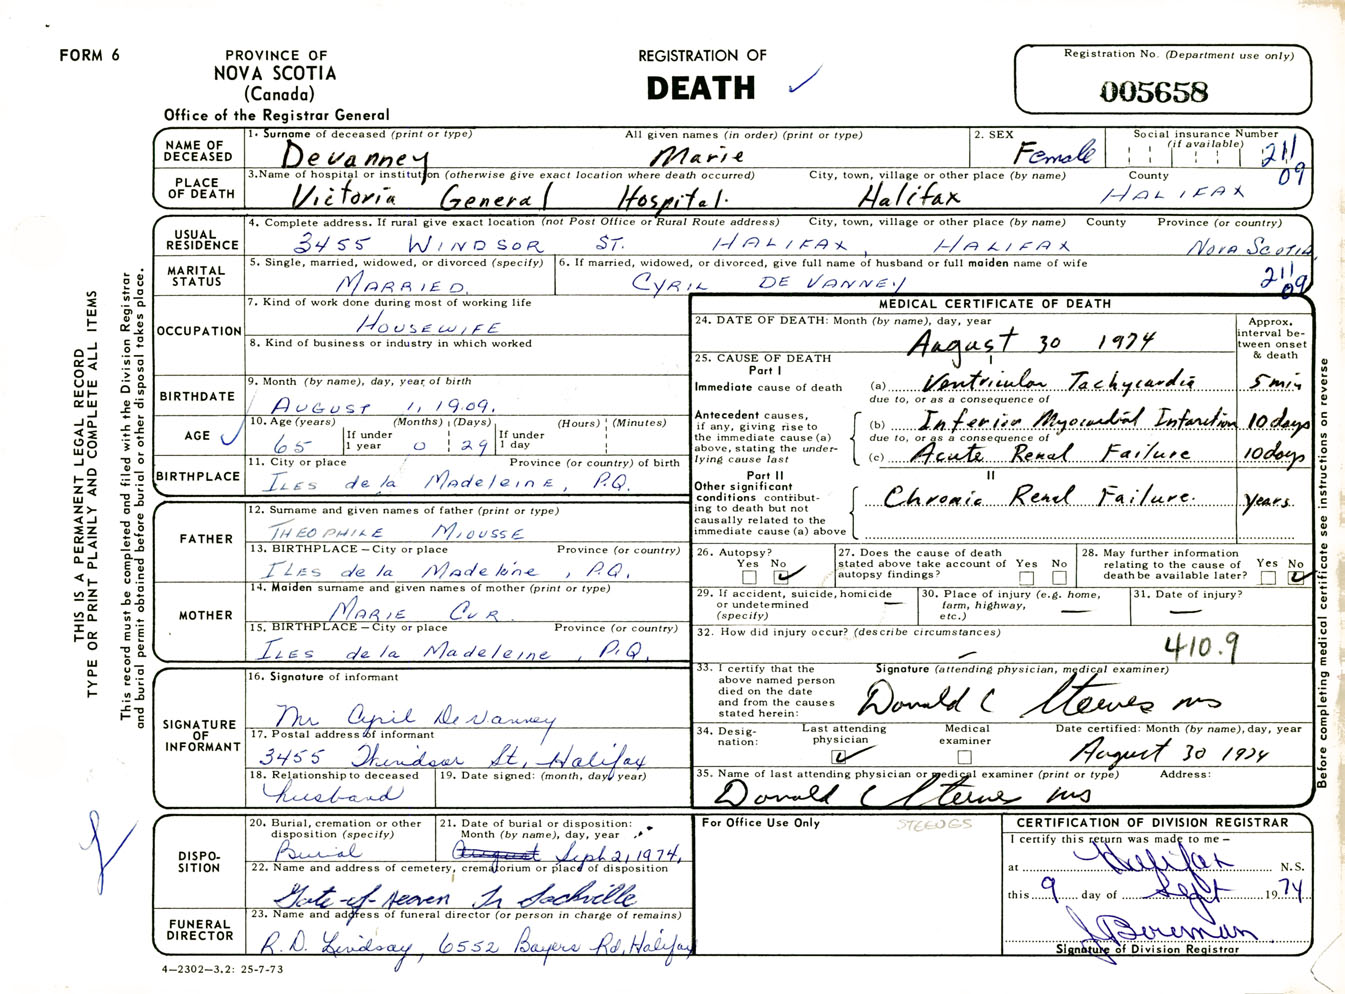 FORM 6
PROVINCE OF
NOVA SCOTIA
(Canada)
Office of the Registrar General
REGISTRATION OF
DEATH
Registration No. (Department use only)
005658
THIS IS A PERMANENT LEGAL RECORD
TYPE OR PRINT PLAINLY AND COMPLETE ALL ITEMS
This record must be completed and filed with the Division Registrar
and burial permit obtained before burial or other disposal takes place.
NAME OF DECEASED
1. Surname of deceased (print or type) All given names (in order) (print or type)
Devanney Marie
2. SEX
Female
Social insurance Number
(if available)
211
09
PLACE OF DEATH
3.Name of hospital or institution (otherwise give exact location where death occurred) City, town, village or other place (by name) County
Victoria General Hospital. Halifax HALIFAX
USUAL RESIDENCE
4. Complete address. If rural give exact location (not Post Office or Rural Route address) City, town, village or other place (by name) County Province (or country)
3455 WINDSOR ST. HALIFAX, HALIFAX NOVA SCOTIA,
MARITAL STATUS
5. Single, married, widowed, or divorced (specify)
MARRIED.
6. If married, widowed, or divorced, give full name of husband or full maiden name of wife
CYRIL DE VANNEY
211
09
OCCUPATION
7. Kind of work done during most of working life
HOUSEWIFE
8. Kind of business or industry in which worked
BIRTHDATE
9. Month (by name), day, year of birth
AUGUST 1, 1909.
AGE
10. Age (years) (Months) (Days) (Hours) (Minutes)
65 If under 1 year 0 29 If under 1 day
BIRTHPLACE
11. City or place Province (or country) of birth
ILES de la MADELEINE, P.Q.
FATHER
12. Surname and given names of father (print or type)
THEOPHILE MIOUSSE
13. BIRTHPLACE – City or place Province (or country)
ILES de la Madeleine, P.Q.
MOTHER
14. Maiden surname and given names of mother (print or type)
MARIE CUR
15. BIRTHPLACE – City or place Province (or country)
ILES de la Madeleine, P.Q.
SIGNATURE OF INFORMANT
16. Signature of informant
Mr Cyril DeVanney
17. Postal address of informant
3455 Windsor St, Halifax
18. Relationship to deceased
husband
19. Date signed: (month, day, year)
DISPO-
SITION
20. Burial, cremation or other
disposition (specify)
Burial
21. Date of burial or disposition:
Month (by name), day, year
August Sept 2, 1974,
22. Name and address of cemetery, crematorium or place of disposition
Gate-of-Heaven Lr Sackville
FUNERAL DIRECTOR
23. Name and address of funeral director (or person in charge of remains)
R.D. Lindsay, 6552 Bayers Rd, Halifax
4–2302–3.2: 25-7-73
MEDICAL CERTIFICATE OF DEATH
24. DATE OF DEATH: Month (by name), day, year
August 30 1974
Approx. interval between onset & death
25. CAUSE OF DEATH
Part I
I
Immediate cause of death (a) Ventricular Tachycardia 5 min
due to, or as a consequence of
Antecedent causes,
if any, giving rise to
the immediate cause (a)
above, stating the under-
lying cause last
(b) Inferior Myocardial Infarction 10 days
due to, or as a consequence of
(c) Acute Renal Failure 10 days
Part II
II
Other significant
conditions contribut-
ing to death but not
causally related to the
immediate cause (a) above
Chronic Renal Failure. years
26. Autopsy?
Yes No
27. Does the cause of death
stated above take account of
autopsy findings?
Yes No
28. May further information
relating to the cause of
death be available later?
Yes No
29. If accident, suicide, homicide
or undetermined
(specify)
30. Place of injury (e.g. home,
farm, highway,
etc.)
31. Date of injury?
32. How did injury occur? (describe circumstances)
410.9
33. I certify that the
above named person
died on the date
and from the causes
stated herein:
Signature (attending physician, medical examiner)
Donald C Steeves MD
34. Desig-
nation:
Last attending
physician
Medical
examiner
Date certified: Month (by name), day, year
August 30 1974
35. Name of last attending physician or medical examiner (print or type) Address:
Donald C Steeves MD
Before completing medical certificate see instructions on reverse
For Office Use Only
STEEVES
CERTIFICATION OF DIVISION REGISTRAR
I certify this return was made to me –
at Halifax N.S.
this 9 day of Sept 1974
Signature of Division Registrar